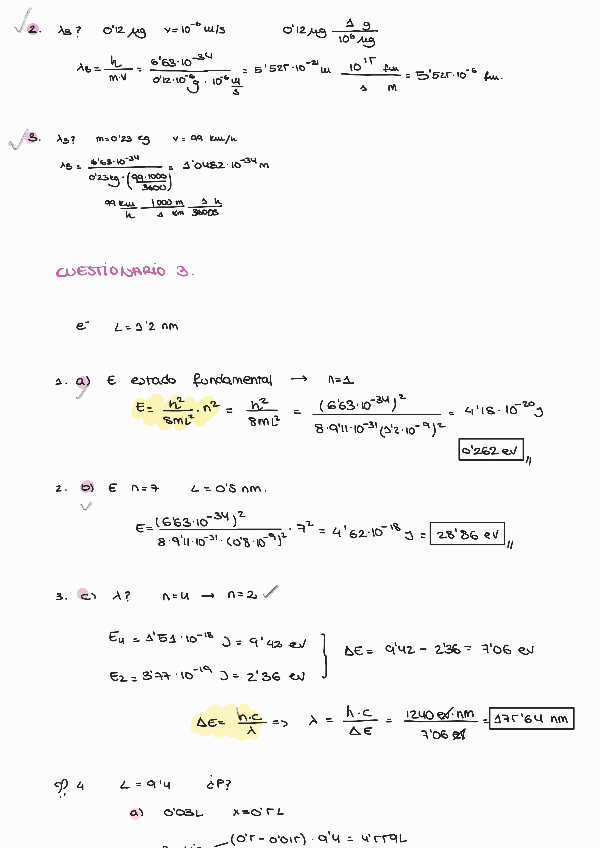 2. λB? 0'12 μg v=10⁻⁶ m/s 0'12 μg 1 g / 10⁶ μg
λB = h / m·v = 6'63·10⁻³⁴ / 0'12·10⁻⁶ g · 10⁻⁶ m/s = 5'525·10⁻²¹ m 10¹⁵ fm / 1 m = 5'525·10⁻⁶ fm.
3. λB? m=0'23 kg v= 99 km/h
λB = 6'63·10⁻³⁴ / 0'23kg·(99·1000 / 3600) = 1'0482·10⁻³⁴ m
99 km / h 1000 m / 1 km 1 h / 3600s
CUESTIONARIO 3.
e⁻ L=1'2 nm
1. a) E estado fundamental → n=1
E= h² / 8mL² · n² = h² / 8mL² = (6'63·10⁻³⁴)² / 8·9'11·10⁻³¹(1'2·10⁻⁹)² = 4'18·10⁻²⁰ J
0'262 eV
2. b) E n=7 L=0'8 nm.
E= (6'63·10⁻³⁴)² / 8·9'11·10⁻³¹·(0'8·10⁻⁹)² · 7² = 4'62·10⁻¹⁸ J = 28'86 eV
3. c) λ? n=4 → n=2
E4 = 1'51·10⁻¹⁸ J = 9'42 eV
ΔE= 9'42 - 2'36 = 7'06 eV
E2= 3'77·10⁻¹⁹ J = 2'36 eV
ΔE= h·c / λ => λ = h·c / ΔE = 1240 eV·nm / 7'06 eV = 175'64 nm
4 L=9'4 ¿P?
a) 0'03L x=0'5L
(0'5-0'015)·9'4 = 4'559L